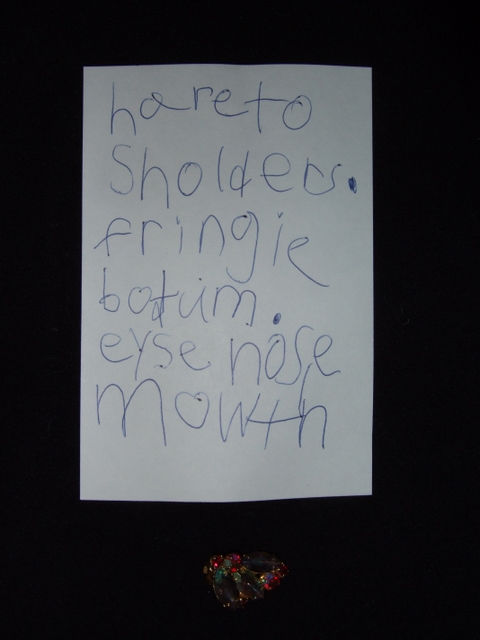 hare to
Sholders.
fringie
botum.
eyse nose
Mowth